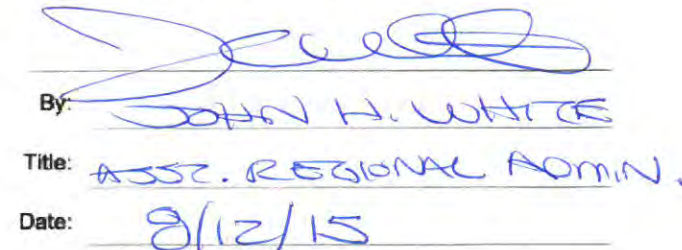 By: JOHN H. WHITE
Title: ASST. REGIONAL ADMIN.
Date: 8/12/15